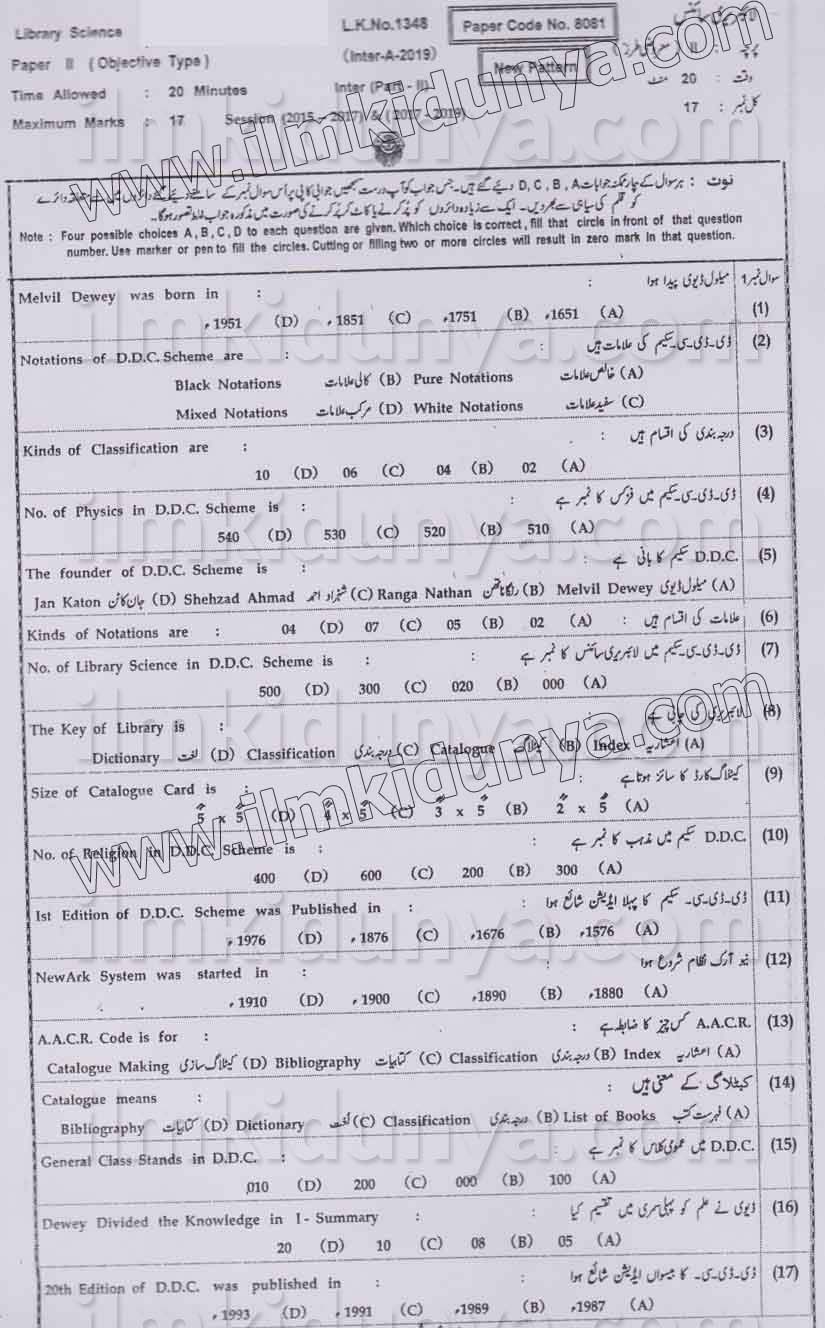 Library Science L.K.No.1348 Paper Code No. 8081 لائبریری سائنس
Paper II (Objective Type) (Inter-A-2019) New Pattern پرچہ : II (معروضی طرز)
Time Allowed : 20 Minutes Inter (Part - II) وقت : 20 منٹ
Maximum Marks : 17 Session (2015 - 2017) & (2017 - 2019) کل نمبر : 17
www.ilmkidunya.com
نوٹ : ہر سوال کے چار ممکنہ جوابات D, C, B, A دیئے گئے ہیں۔ جس جواب کو آپ درست سمجھیں جوابی کاپی پر اُس سوال نمبر کے سامنے دیئے گئے دائروں میں سے متعلقہ دائرے
کو قلم کی سیاہی سے بھر دیں۔ ایک سے زیادہ دائروں کو پُر کرنے یا کاٹ کر پُر کرنے کی صورت میں مذکورہ جواب غلط تصور ہو گا۔
Note : Four possible choices A, B, C, D to each question are given. Which choice is correct, fill that circle in front of that question
number. Use marker or pen to fill the circles. Cutting or filling two or more circles will result in zero mark in that question.
Melvil Dewey was born in : میلول ڈیوی پیدا ہوا : سوال نمبر 1
1951ء (D) 1851ء (C) 1751ء (B) 1651ء (A) (1)
Notations of D.D.C. Scheme are : ڈی۔ڈی۔سی۔سکیم کی علامات ہیں : (2)
Black Notations کالی علامات (B) Pure Notations خالص علامات (A)
Mixed Notations مرکب علامات (D) White Notations سفید علامات (C)
Kinds of Classification are : درجہ بندی کی اقسام ہیں : (3)
10 (D) 06 (C) 04 (B) 02 (A)
No. of Physics in D.D.C. Scheme is : ڈی۔ڈی۔سی۔سکیم میں فزکس کا نمبر ہے : (4)
540 (D) 530 (C) 520 (B) 510 (A)
The founder of D.D.C. Scheme is : D.D.C. سکیم کا بانی ہے : (5)
Jan Katon جان کاٹن (D) Shehzad Ahmad شہزاد احمد (C) Ranga Nathan رنگا ناتھن (B) Melvil Dewey میلول ڈیوی (A)
Kinds of Notations are : 04 (D) 07 (C) 05 (B) 02 (A) علامات کی اقسام ہیں : (6)
No. of Library Science in D.D.C. Scheme is : ڈی۔ڈی۔سی۔سکیم میں لائبریری سائنس کا نمبر ہے : (7)
500 (D) 300 (C) 020 (B) 000 (A)
The Key of Library is : لائبریری کی چابی ہے : (8)
Dictionary لغت (D) Classification درجہ بندی (C) Catalogue کیٹلاگ (B) Index اشاریہ (A)
Size of Catalogue Card is : کیٹلاگ کارڈ کا سائز ہوتا ہے : (9)
5" x 5" (D) 4" x 5" (C) 3" x 5" (B) 2" x 5" (A)
www.ilmkidunya.com
No. of Religion in D.D.C. Scheme is : D.D.C. سکیم میں مذہب کا نمبر ہے : (10)
400 (D) 600 (C) 200 (B) 300 (A)
Ist Edition of D.D.C. Scheme was Published in : ڈی۔ڈی۔سی۔ سکیم کا پہلا ایڈیشن شائع ہوا : (11)
1976ء (D) 1876ء (C) 1676ء (B) 1576ء (A)
NewArk System was started in : نیو آرک نظام شروع ہوا : (12)
1910ء (D) 1900ء (C) 1890ء (B) 1880ء (A)
A.A.C.R. Code is for : A.A.C.R. کس چیز کا ضابطہ ہے : (13)
Catalogue Making کیٹلاگ سازی (D) Bibliography کتابیات (C) Classification درجہ بندی (B) Index اشاریہ (A)
Catalogue means : کیٹلاگ کے معنی ہیں : (14)
Bibliography کتابیات (D) Dictionary لغت (C) Classification درجہ بندی (B) List of Books فہرست کتب (A)
General Class Stands in D.D.C. : D.D.C. میں عمومی کلاس کا نمبر ہے : (15)
010 (D) 200 (C) 000 (B) 100 (A)
Dewey Divided the Knowledge in I - Summary : ڈیوی نے علم کو پہلی سمری میں تقسیم کیا : (16)
20 (D) 10 (C) 08 (B) 05 (A)
20th Edition of D.D.C. was published in : ڈی۔ڈی۔سی۔ کا بیسواں ایڈیشن شائع ہوا : (17)
1993ء (D) 1991ء (C) 1989ء (B) 1987ء (A)